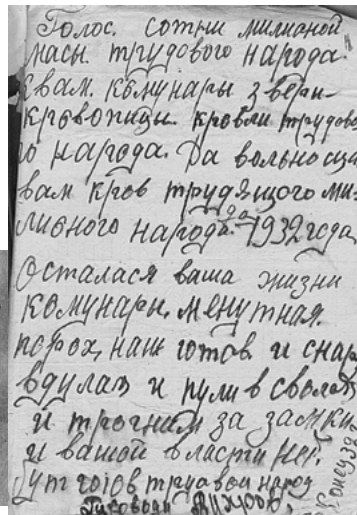 Голос. сотни милионой
масы. трудового народа."
квам. комунары звери-
кровопицы. крови трудово
го народа. Да вольно сца
вам кров трудящого ми-
лионого народа. до 1932 года
Осталася ваша жизни
комунары. менутная.
порох, наш готов. и снар
вдулах и пули в стволах
и трогним за замки
и вашой власти нет.
бунт готов трудовой народ